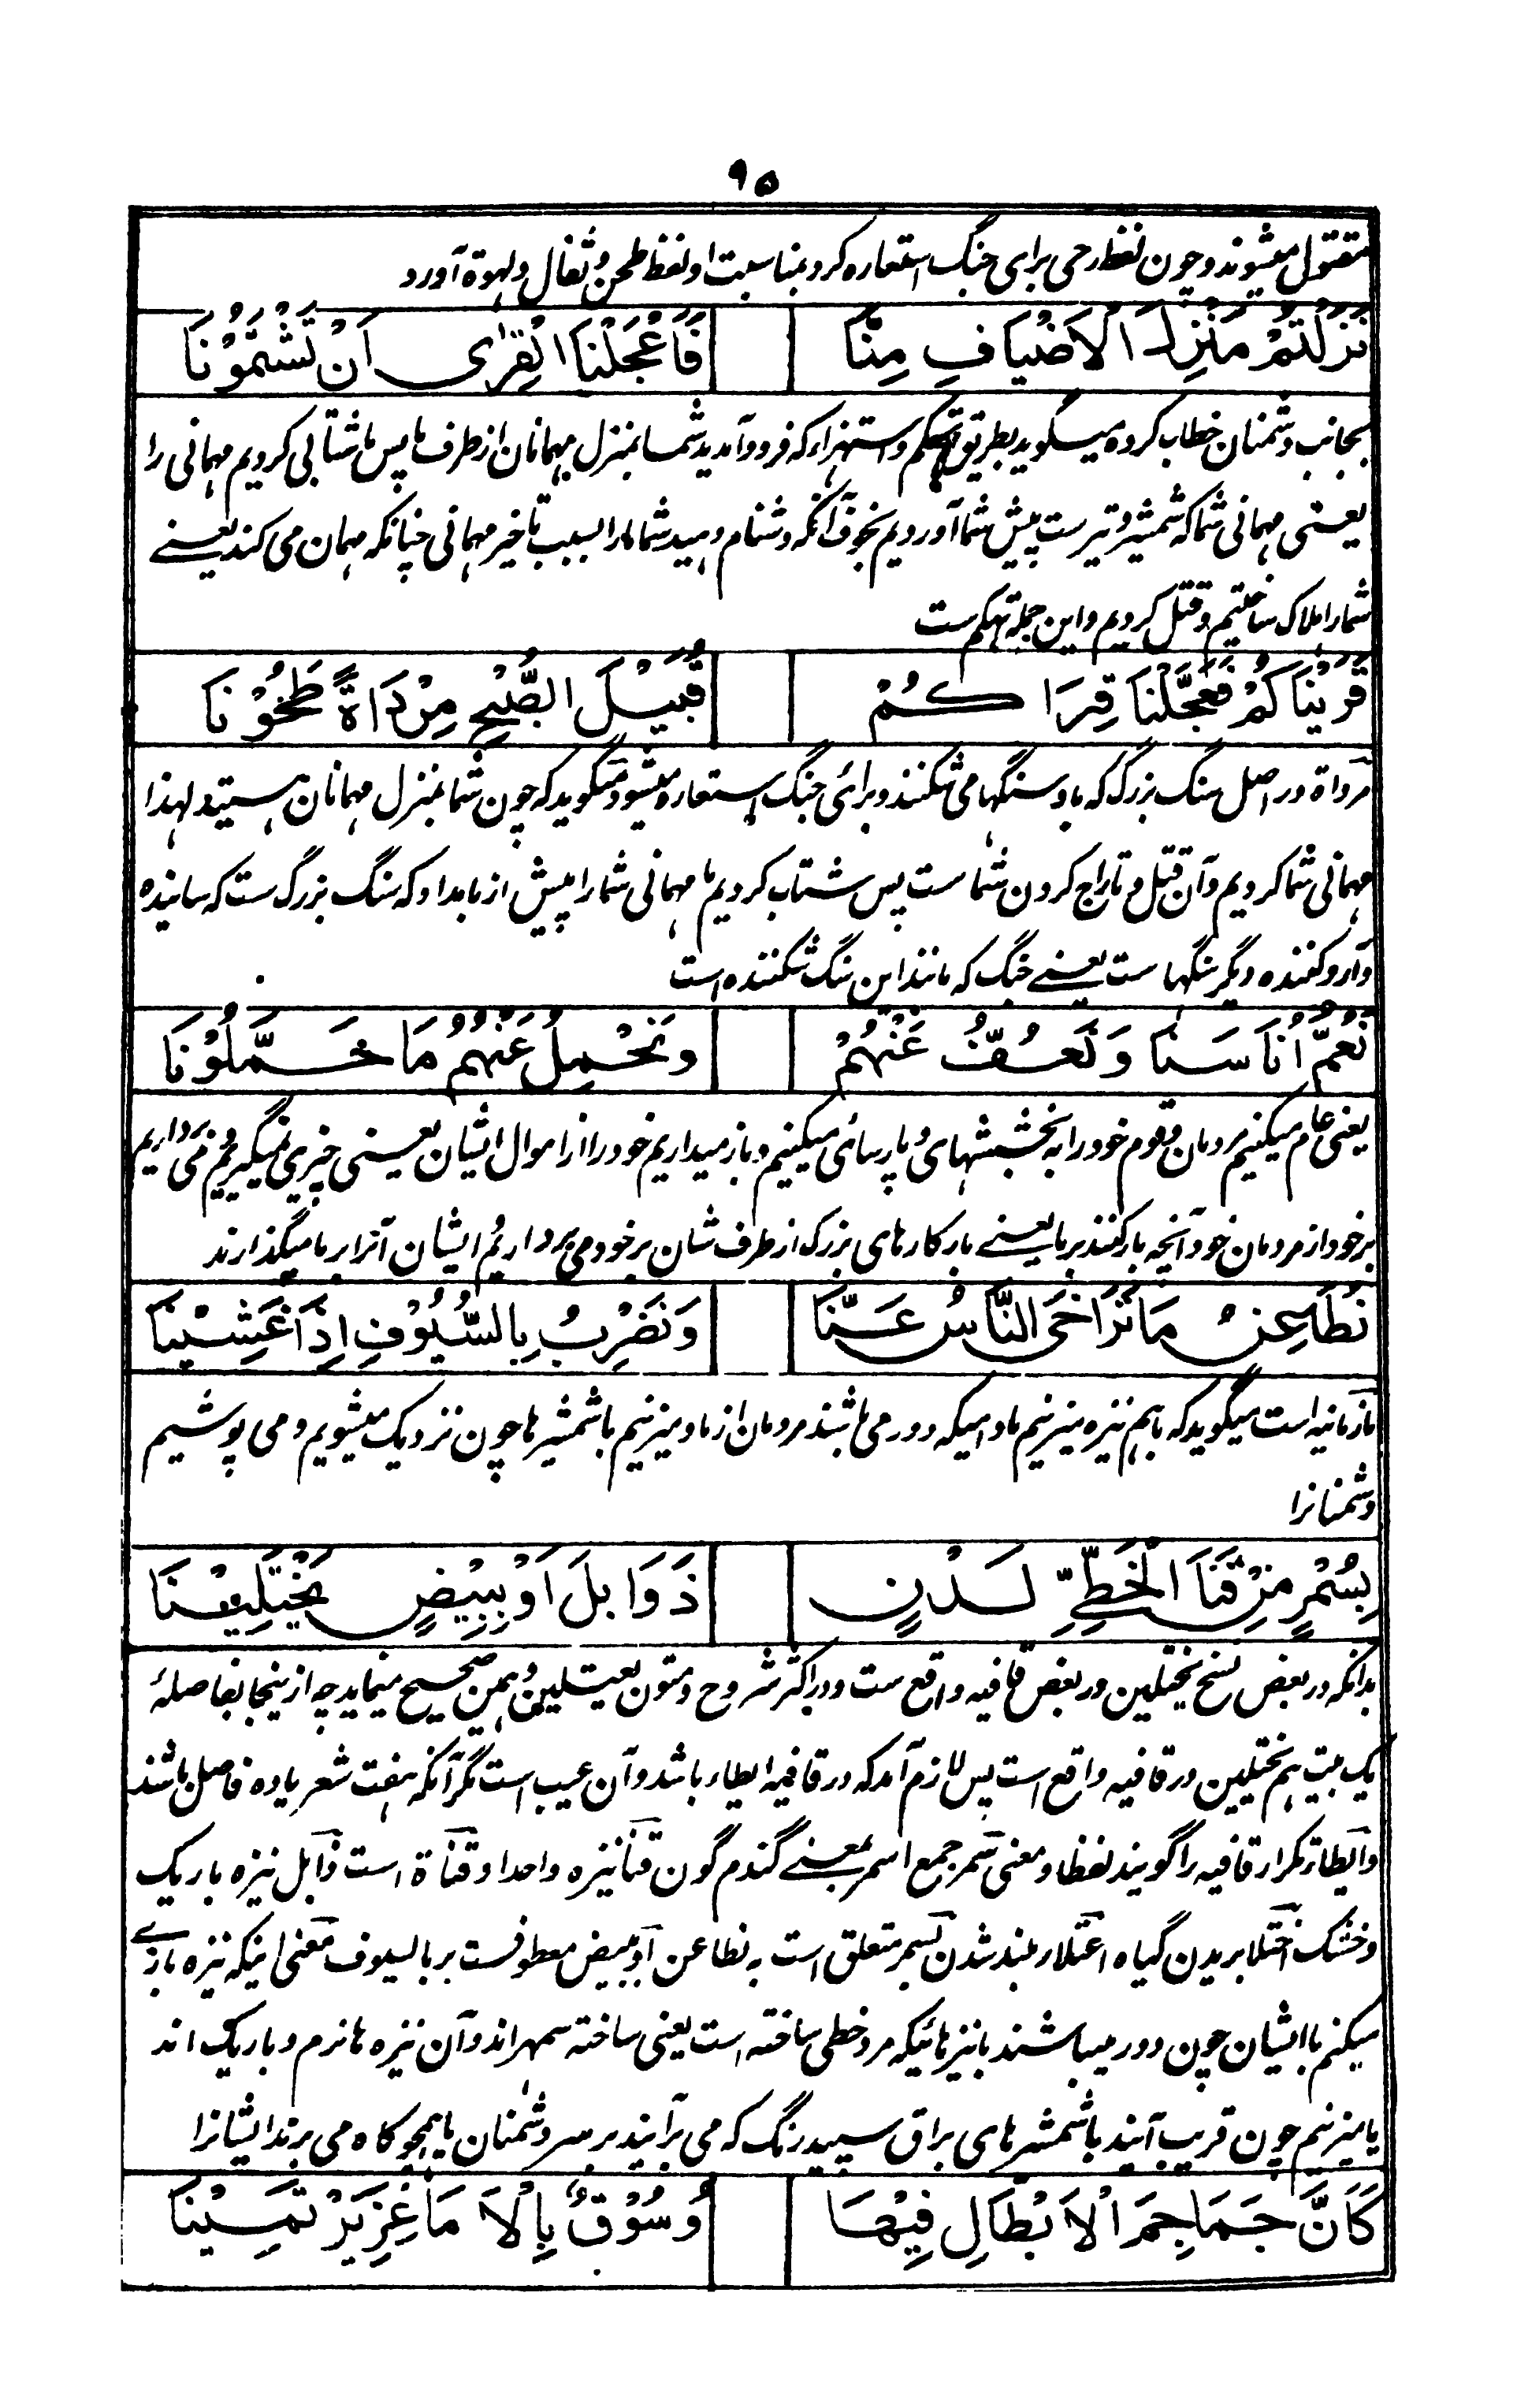 ۹۵
مقتول میشوند و چون لفظ رحی برای جنگ استعاره کرد بمناسبت او لفظ طحن و ثفال و لهوة آورد
نَزَلْتُمْ مَنْزِلَ الْاَضْیَافِ مِنَّا فَاَعْجَلْنَا الْقِرٰی اَنْ تَشْتَمُوْنَا
بجانب دشمنان خطاب کرده میگوید بطریق تهکم و استهزاء که فرود آمدید شما بمنزل مهمانان از طرف ما پس ما شتابی کردیم مهمانی را
یعنی مهمانی شما که شمشیر و تیرست پیش شما آوردیم بخوف آنکه دشنام دهید شما مارا بسبب تاخیر مهمانی چنانکه مهمان می کند یعنے
شمارا هلاک ساختیم و قتل کردیم و این جمله تهکم ست
قَرَیْنَاکُمْ فَعَجَّلْنَا قِرَاکُمْ قُبَیْلَ الصُّبْحِ مِرْدَاةً طَحُوْنَا
مرداة در اصل سنگ بزرگ که باو سنگها می شکنند و برائی جنگ استعاره میشود میگوید که چون شما بمنزل مهمانان هستید لهذا
مهمانی شما کردیم و آن قتل و تاراج کردن شما ست پس شتاب کردیم ما مهمانی شما را پیش از بامداد که سنگ بزرگ ست که سائیده
و آرد کننده دیگر سنگها ست یعنے جنگ که مانند این سنگ شکننده است
نَعُمُّ اُنَاسَنَا وَ نَعِفُّ عَنْهُمْ وَ نَحْمِلُ عَنْهُمُ مَا حَمَّلُوْنَا
یعنی عام میکنیم مردمان و قوم خود را به بخششهای و پارسائی میکنیم و باز میداریم خود را از اموال ایشان یعنی چیزی نمیگیریم و می برداریم
بر خود از مردمان خود آنچه بار کنند بر ما یعنے بار کارهای بزرگ از طرف شان بر خود می برداریم ایشان آنرا بر ما میگذارند
نُطَاعِنُ مَا تَرَاخَی النَّاسُ عَنَّا وَ نَضْرِبُ بِالسُّیُوْفِ اِذَا غَشِیْنَا
ما زمانیه است میگوید که باهم نیزه میزنیم مادامیکه دور می باشند مردمان از ما و میزنیم با شمشیرها چون نزدیک میشویم و می پوشیم
دشمنانرا
بِسُمْرٍ مِنْ قَنَا الْخَطِّیِّ لَدْنٍ ذَوَابِلَ اَوْ بِبِیْضٍ یَخْتَلِیْنَا
بدانکه در بعض نسخ یختلین در بعض قافیه واقع ست و در اکثر شروح و متون یعتلین و همین صحیح مینماید چه از ینجا بفاصلۀ
یک بیت هم یختلین در قافیه واقع است پس لازم آمد که در قافیه ایطاء باشد و آن عیب است مگر آنکه هفت شعر یا ده فاصل باشند
و ایطا تکرار قافیه را گویند لفظا و معنی سمر جمع اسمر بمعنے گندم گون قنا نیزه واحد او قناة است ذابل نیزه باریک
و خشک اختلا بریدن گیاه اعتلاء بلند شدن بسمر متعلق است به نطاعن او ببیض معطوفست بر بالسیوف معنی اینکه نیزه بازے
میکنم با ایشان چون دور میباشند با نیزهائیکه مرد خطی ساخته است یعنی ساخته سمهر اند و آن نیزه ها نرم و باریک اند
یا میزنیم چون قریب آیند با شمشیرهای براق سپید رنگ که می برآیند بر سر دشمنان یا همچو کاه می برند ایشانرا
کَاَنَّ جَمَاجِمَ الْاَبْطَالِ فِیْهَا وُسُوْقٌ بِالْاَمَاعِزِ یَرْتَمِیْنَا